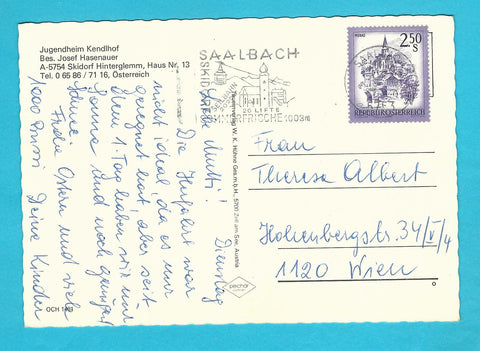 Jugendheim Kendlhof
Bes. Josef Hasenauer
A-5754 Skidorf Hinterglemm, Haus Nr. 13
Tel. 0 65 86 / 71 16, Österreich
SAALBACH
SKIDORF
20 LIFTS
SOMMERFRISCHE 1003m
2.50 S
REPUBLIK ÖSTERREICH
Dienstag
Liebe Mutti!
Die Hinfahrt war
nicht ideal, da es nur
geregnet hat, aber seit
dem 1. Tag haben wir nur
Sonne und noch genügend
Schnee!
Frohe Ostern und viele
1000 Bussi Deine Kinder
W. K. Hühne Ges.m.b.H., 5700 Zell am See, Austria
OCH 14/9
Frau
Theresa Albert
Hohenbergstr. 34/V/4
1120 Wien